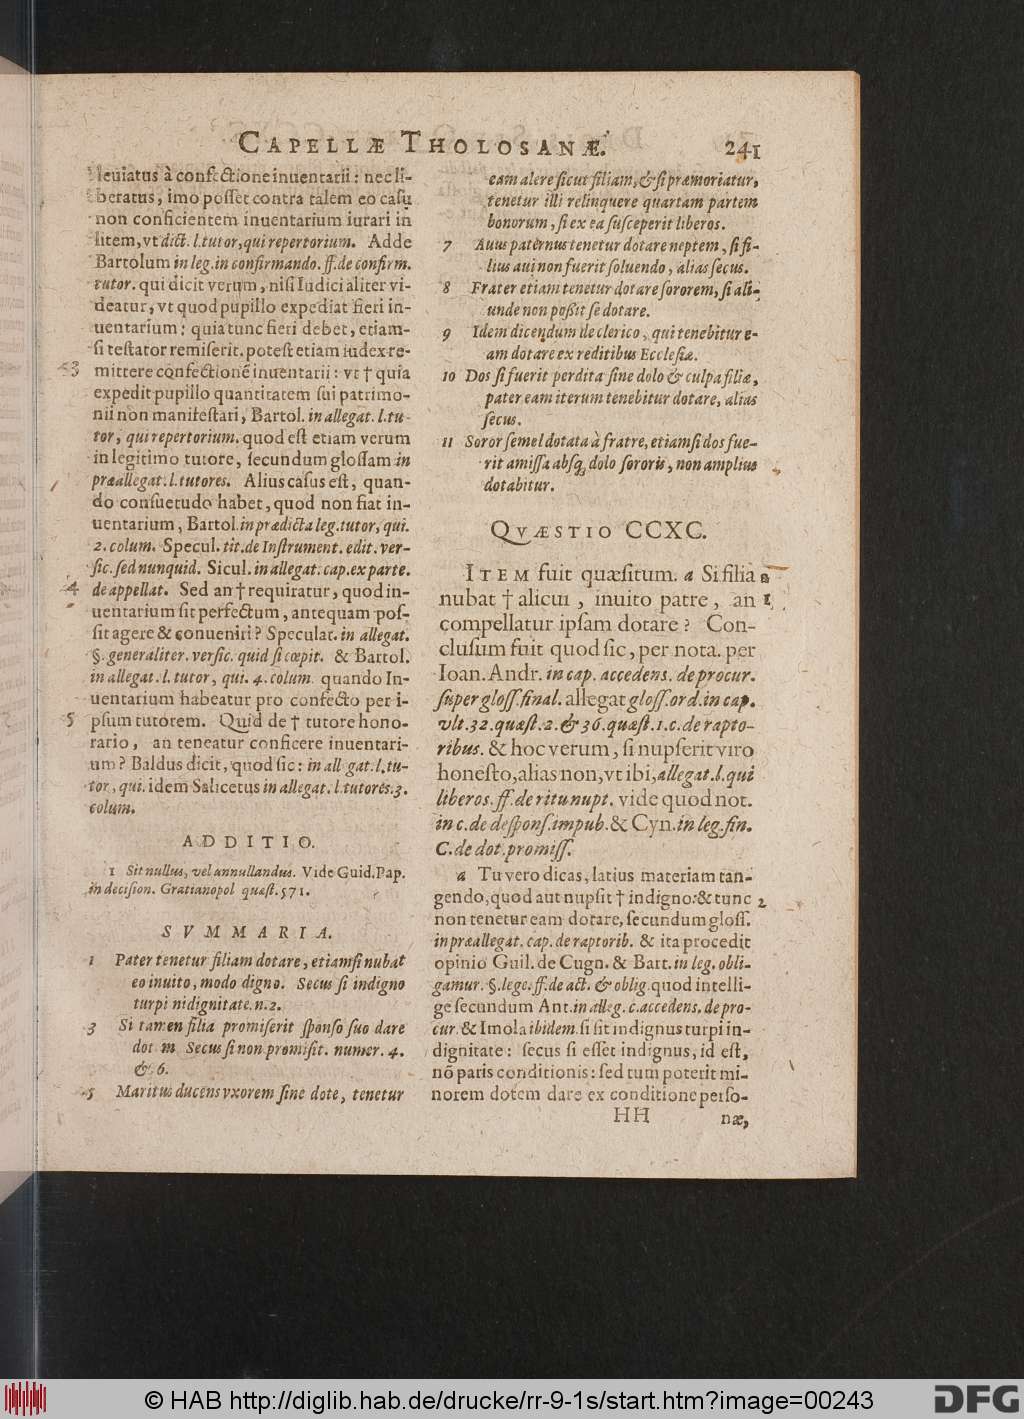 CAPELLÆ THOLOSANÆ. 241
leuiatus à confectione inuentarii: nec li-
beratus, imo posset contra talem eo casu
non conficientem inuentarium iurari in
litem, vt dict. l. tutor, qui repertorium. Adde
Bartolum in leg. in confirmando. ff. de confirm.
tutor. qui dicit verum, nisi Iudici aliter vi-
deatur, vt quod pupillo expediat fieri in-
uentarium: quia tunc fieri debet, etiam-
si testator remiserit. potest etiam iudex re-
3 mittere confectionē inuentarii: vt † quia
expedit pupillo quantitatem sui patrimo-
nii non manifestari, Bartol. in allegat. l. tu-
tor, qui repertorium. quod est etiam verum
in legitimo tutore, secundum glossam in
præallegat. l. tutores. Alius casus est, quan-
do consuetudo habet, quod non fiat in-
uentarium, Bartol. in prædicta leg. tutor, qui.
2. colum. Specul. tit. de Instrument. edit. ver-
sic. sed nunquid. Sicul. in allegat. cap. ex parte.
4 de appellat. Sed an † requiratur, quod in-
uentarium sit perfectum, antequam pos-
sit agere & conueniri? Speculat. in allegat.
§. generaliter. versic. quid si cœpit. & Bartol.
in allegat. l. tutor, qui. 4. colum. quando In-
uentarium habeatur pro confecto per i-
5 psum tutorem. Quid de † tutore hono-
rario, an teneatur conficere inuentari-
um? Baldus dicit, quod sic: in all gat. l. tu-
tor, qui. idem Salicetus in allegat. l. tutores. 3.
colum.
ADDITIO.
1 Sit nullus, vel annullandus. Vide Guid. Pap.
in decision. Gratianopol quæst. 571.
SVMMARIA.
1 Pater tenetur filiam dotare, etiamsi nubat
eo inuito, modo digno. Secus si indigno
turpi nidignitate. n. 2.
3 Si tamen filia promiserit sponso suo dare
dot m Secus si non promisit. numer. 4.
& 6.
5 Maritus ducens vxorem sine dote, tenetur
eam alere sicut filiam, & si præmoriatur,
tenetur illi relinquere quartam partem
bonorum, si ex ea susceperit liberos.
7 Auus paternus tenetur dotare neptem, si fi-
lius aui non fuerit soluendo, alias secus.
8 Frater etiam tenetur dotare sororem, si ali-
unde non possit se dotare.
9 Idem dicendum de clerico, qui tenebitur e-
am dotare ex reditibus Ecclesiæ.
10 Dos si fuerit perdita sine dolo & culpa filiæ,
pater eam iterum tenebitur dotare, alias
secus.
11 Soror semel dotata à fratre, etiamsi dos fue-
rit amissa absq; dolo sororis, non amplius
dotabitur.
QVÆSTIO CCXC.
ITEM fuit quæsitum. a Si filia a
nubat † alicui, inuito patre, an 1
compellatur ipsam dotare? Con-
clusum fuit quod sic, per nota. per
Ioan. Andr. in cap. accedens. de procur.
super gloss. final. allegat gloss. ord. in cap.
vlt. 32. quæst. 2. & 36. quæst. 1. c. de rapto-
ribus. & hoc verum, si nupserit viro
honesto, alias non, vt ibi, allegat. l. qui
liberos. ff. de ritu nupt. vide quod not.
in c. de desponf. impub. & Cyn. in leg. fin.
C. de dot. promiss.
a Tu vero dicas, latius materiam tan-
gendo, quod aut nupsit † indigno: & tunc 2
non tenetur eam dotare, secundum gloss.
in præallegat. cap. de raptorib. & ita procedit
opinio Guil. de Cugn. & Bart. in leg. obli-
gamur. §. lege. ff. de act. & oblig. quod intelli-
ge secundum Ant. in alleg. c. accedens. de pro-
cur. & Imola ibidem. si sit indignus turpi in-
dignitate: secus si esset indignus, id est,
nō paris conditionis: sed tum poterit mi-
norem dotem dare ex conditione perso-
HH næ,
© HAB http://diglib.hab.de/drucke/rr-9-1s/start.htm?image=00243 DFG